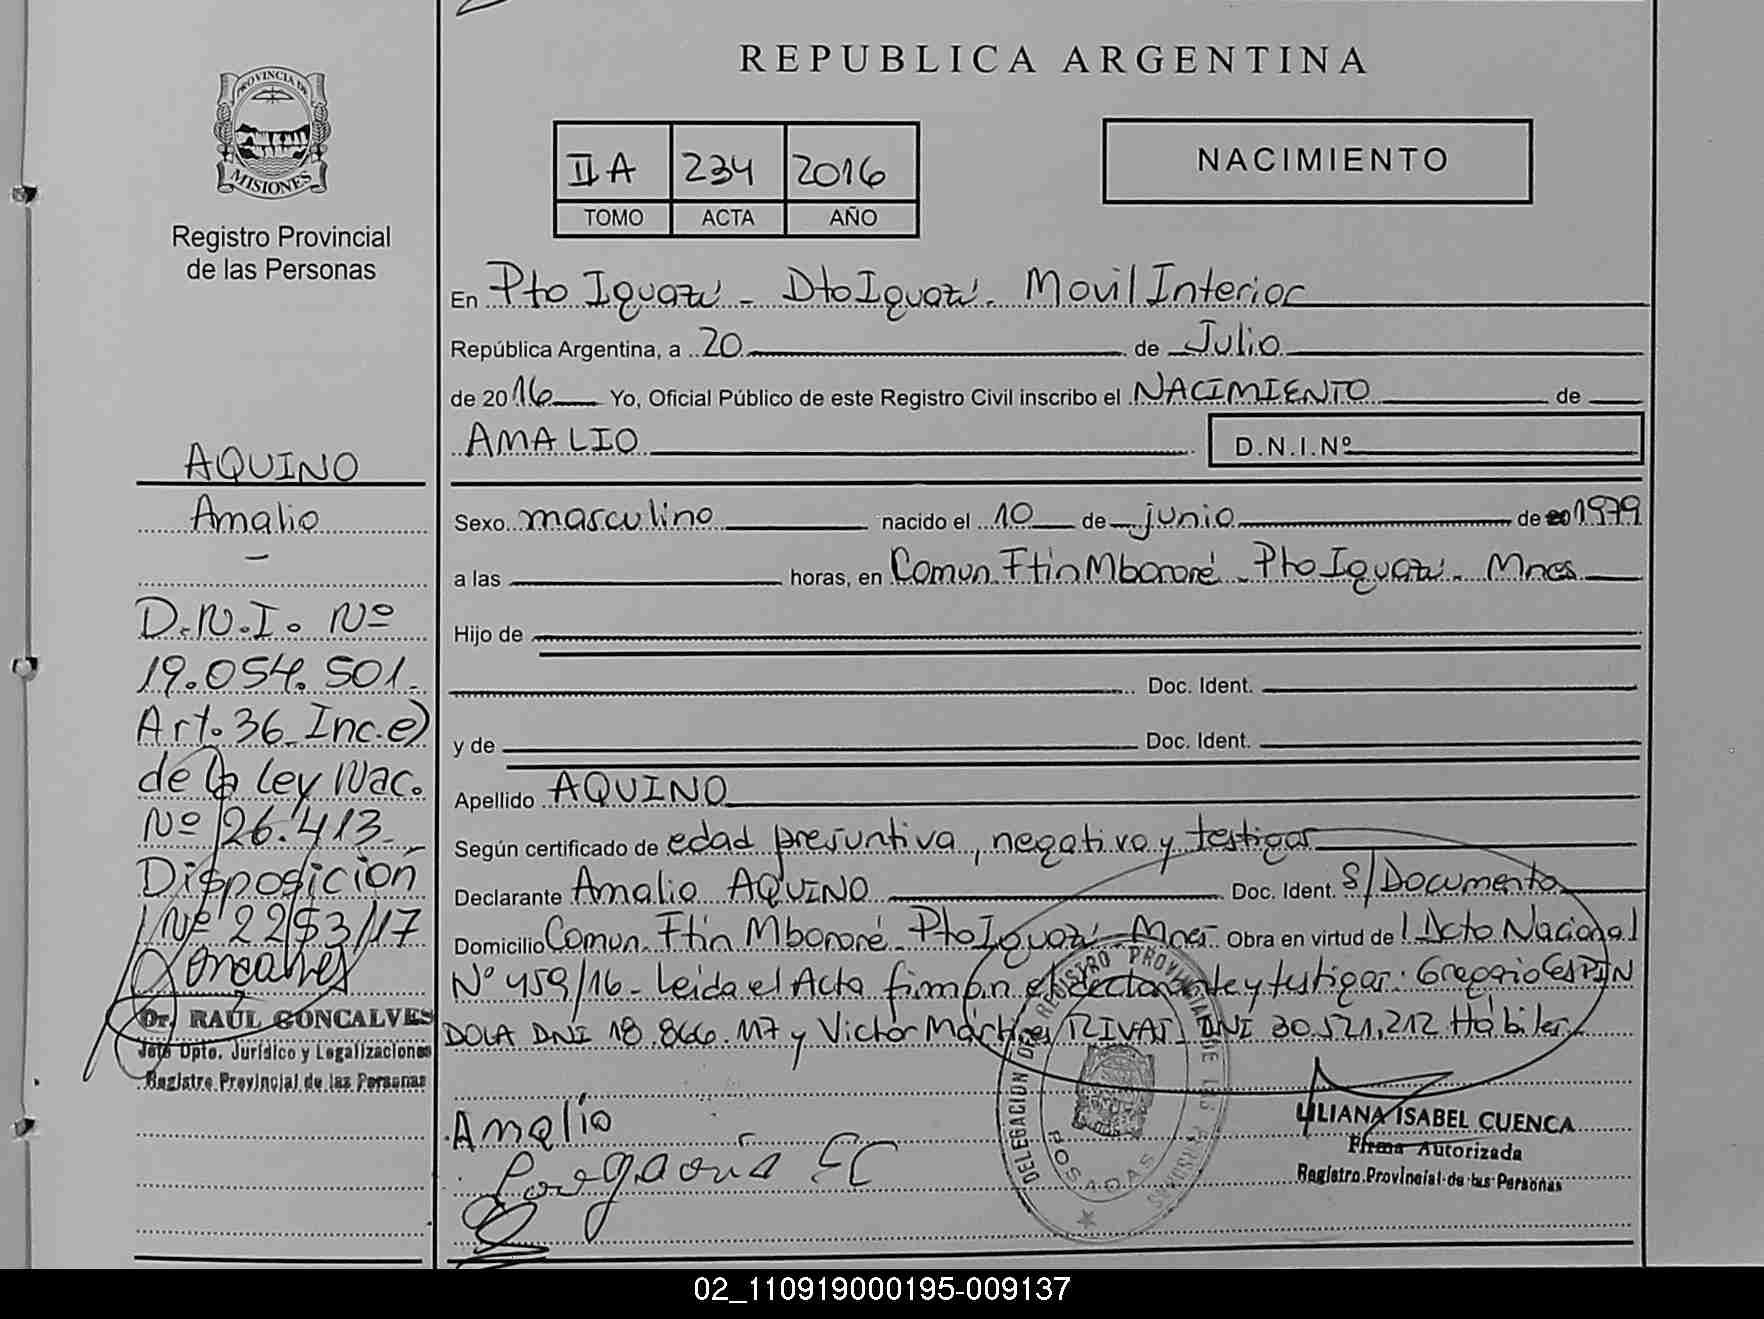 REPUBLICA ARGENTINA
PROVINCIA DE
MISIONES
Registro Provincial
de las Personas
II A 234 2016
TOMO ACTA AÑO
NACIMIENTO
En Pto Iguazú - Dto Iguazú - Movil Interior
República Argentina, a 20 de Julio
de 2016 Yo, Oficial Público de este Registro Civil inscribo el NACIMIENTO de
AMALIO D.N.I.Nº
Sexo masculino nacido el 10 de junio de 1979
a las horas, en Comun. Ftin Mbororé - Pto Iguazú - Mnes
Hijo de
Doc. Ident.
y de Doc. Ident.
Apellido AQUINO
Según certificado de edad presuntiva, negativo y testigos
Declarante Amalio AQUINO Doc. Ident. S/Documento
Domicilio Comun. Ftin Mbororé - Pto Iguazú - Mnes Obra en virtud de Nacional
Nº 459/16 - Leida el Acta firman el declarante y testigos: Gregorio ESPIN
DOLA DNI 18.866.117 y Victor Martires RIVAS DNI 30.521.212 Hábiles
Amalio
LILIANA ISABEL CUENCA
Firma Autorizada
Registro Provincial de las Personas
DELEGACION DEL REGISTRO PROVINCIAL DE LAS PERSONAS
POSADAS
AQUINO
Amalio
-
D.N.I. Nº
19.054.501.
Art. 36 Inc. e)
de la Ley Nac.
Nº 26.413.
Disposición
Nº 2253/17
Dr. RAUL GONCALVES
Jefe Dpto. Jurídico y Legalizaciones
Registro Provincial de las Personas
02_110919000195-009137